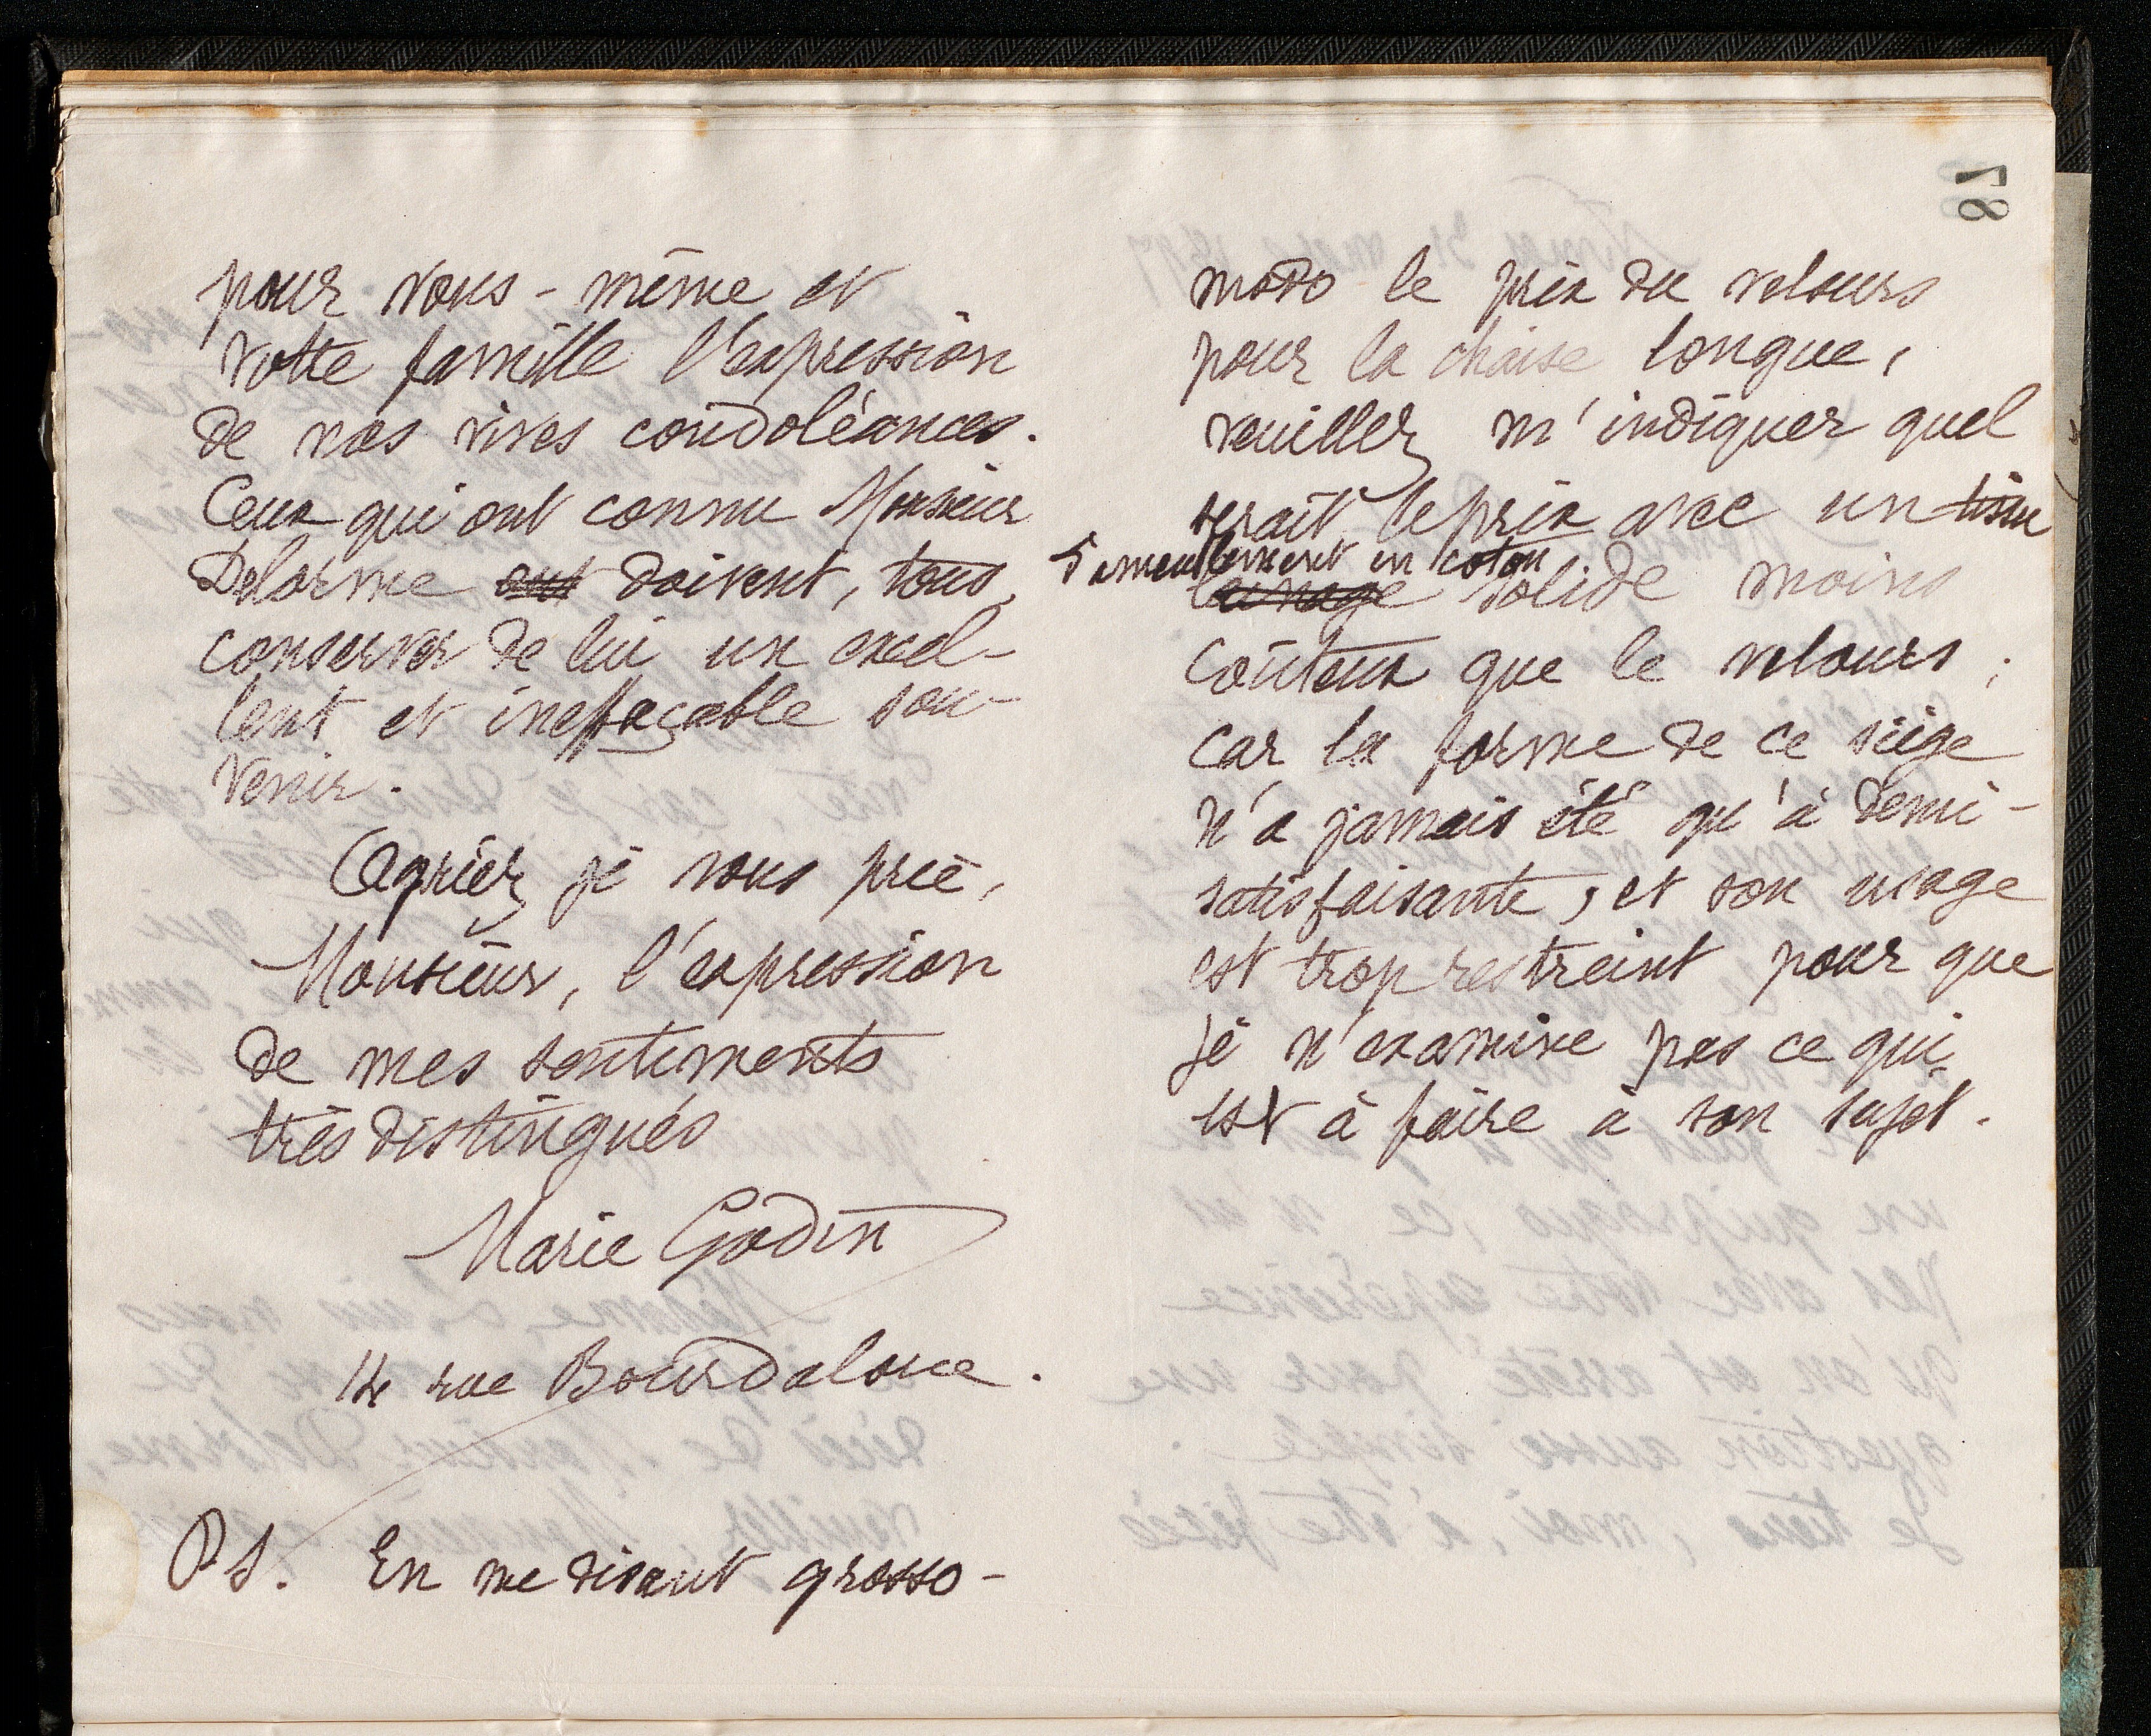 pour vous-même et
votre famille l'expression
de nos vives condoléances.
Ceux qui ont connu Monsieur
Delorme ont doivent, tous,
conserver de lui un excel-
lent et ineffaçable sou-
venir.
Agréez je vous prie,
Monsieur, l'expression
de mes sentiments
très distingués
Marie Godin
14 rue Bourdaloue.
PS. En me disant grosso-
78
modo le prix du velours
pour la chaise longue,
veuillez m'indiquer quel
serait le prix avec un tissu
d'ameublement en coton
lainage solide moins
coûteux que le velours ;
car la forme de ce siège
n'a jamais été qu'à demi-
satisfaisante, et son usage
est trop restreint pour que
je n'examine pas ce qui
est à faire à son sujet.